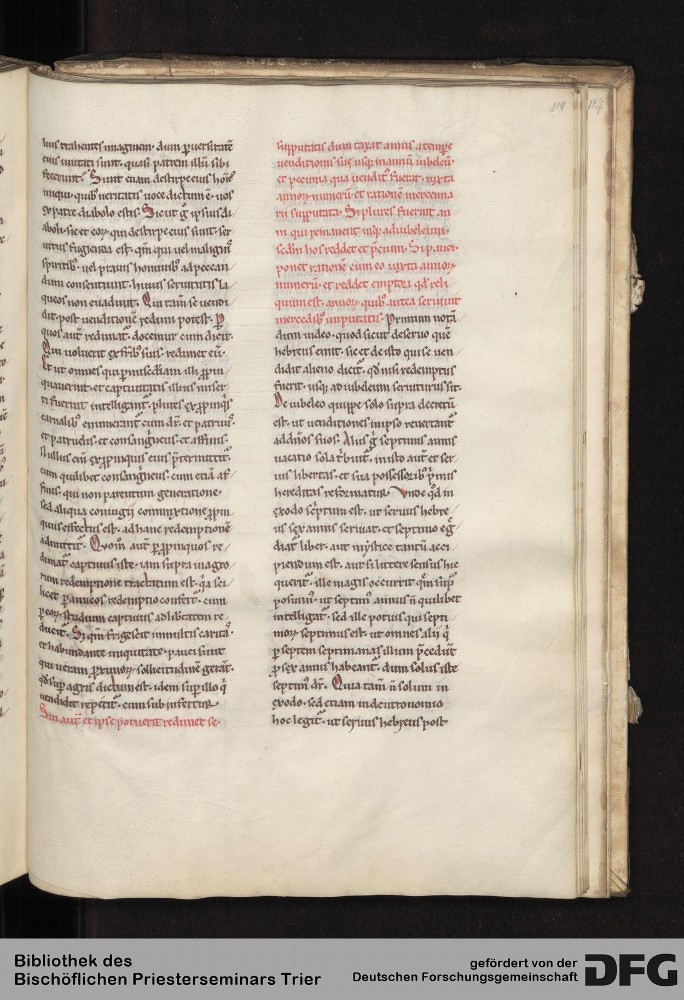 114 127
luis trahentes imaginem· dum puersitatē
eius imitati sunt· quasi patrem illū sibi
fecerunt· Sunt etiam de stirpe eius hoīes
iniqui· quibꝰ ueritatis uoce dictum ē· uos
ex patre diabolo estis· Sicut g̊ ipsius di
aboli· sic et eoꝝ· qui de stirpe eius sunt· ser
uitus fugienda est· qm̄ qui uel malignis
spiritibꝰ· uel prauis hominibꝰ ad peccan
dum consentiunt· huius seruitutis la
queos non euadunt· Qui tam̄ se uendi
dit· post uenditionem redimi potest· P
quos aut̄ redimat̄· docemur cum dicit·
Qui uoluerit ex fr̄ibꝰ suis· redimet eū·
Et ut omnes qui
quauerint· et captiuitatis illius miser
ti fuerint intelligant̄· plures ex ꝓpinqꝰs
carnalibꝰ enumerant̄ cum dr̄· et patruus·
et patruelis· et consanguineus· et affinis·
Nullus enī ex ꝓpinquis eius p̄termittit̄·
cum quilibet consanguineus· cum etiā af
finis· qui non parentum generatione·
sed aliqua coniugii coniunctione ꝓpin
quus effectus est· ad hanc redemptionē
admittit̄· Quom̊ aut̄ ꝑ ꝓpinquos re
dimat̄ captiuus iste· iam supra in agro
rum redemptione tractatum est· qꝛ sci
licet ꝑ amicos redemptio confert̄· cum
ꝑ eoꝝ studium captiuus ad libertatem re
ducit̄· Sꝫ qm̄ frigescit in multis caritas·
et habundante iniquitate· pauci sunt
qui ueram ꝓximoꝝ sollicitudinē gerāt·
qd̄ sup̄ agris dictum est· idem sup̄ illo q̄
uendidit repetit̄· cum subinfertur
Sin aut̄ et ipse potuerit redimet se·
supputatis dum taxat annis a tempore
uenditionis suę usqꝫ in annū iubeleū·
et pecunia qua uenditꝰ fuerit· iuxta
annoꝝ numerū· et rationē mercenna
rii supputata· Si plures fuerint an
ni qui remanent usqꝫ ad iubeleum·
scd̄m hos reddet et p̄cium· Si pauci·
ponet rationē cum eo iuxta annoꝝ
numerū· et reddet emptori qd̄ reli
quum est· annoꝝ· quibꝰ antea seruiuit
mercedibꝰ imputatis· Primum notā
dum uideo· quod sicut de seruo quē
hebreus emit· sic et de isto qui se uen
didit alieno dicit̄· qd̄ nisi redemptus
fuerit· usqꝫ ad iubeleum seruiturus sit·
De iubeleo quippe solo supra decretū
est· ut uenditiones in ipso reuertant̄
ad dn̄os suos· Aliis g̊ septimis annis
uacatio sola tribuit̄· in isto aut̄ et ser
uis libertas· et sua possessoribꝰ p̄mis
hereditas reformatur· Unde qd̄ in
exodo sc̄ptum est· ut seruus hebre
us sex annis seruiat· et septimo eg̊
diat̄ liber· aut mystice tantū acci
piendum est· aut si littere sensus hic
querit̄· ille magis occurrit quem sup̄
posuimꝰ· ut septimꝰ annus n̄ quilibet
intelligat̄· sed ille potius qui septi
moꝝ septimus est· ut omnes alii q̄
ꝑ septem septimanas illum p̄cedūt
ꝓ sex annis habeant̄· dum solus iste
septimꝰ dr̄· Quia tam̄ n̄ solum in
exodo· sed etiam in deuteronomio
hoc legit̄· ut seruus hebreus post
Bibliothek des
Bischöflichen Priesterseminars Trier
gefördert von der
Deutschen Forschungsgemeinschaft
DFG